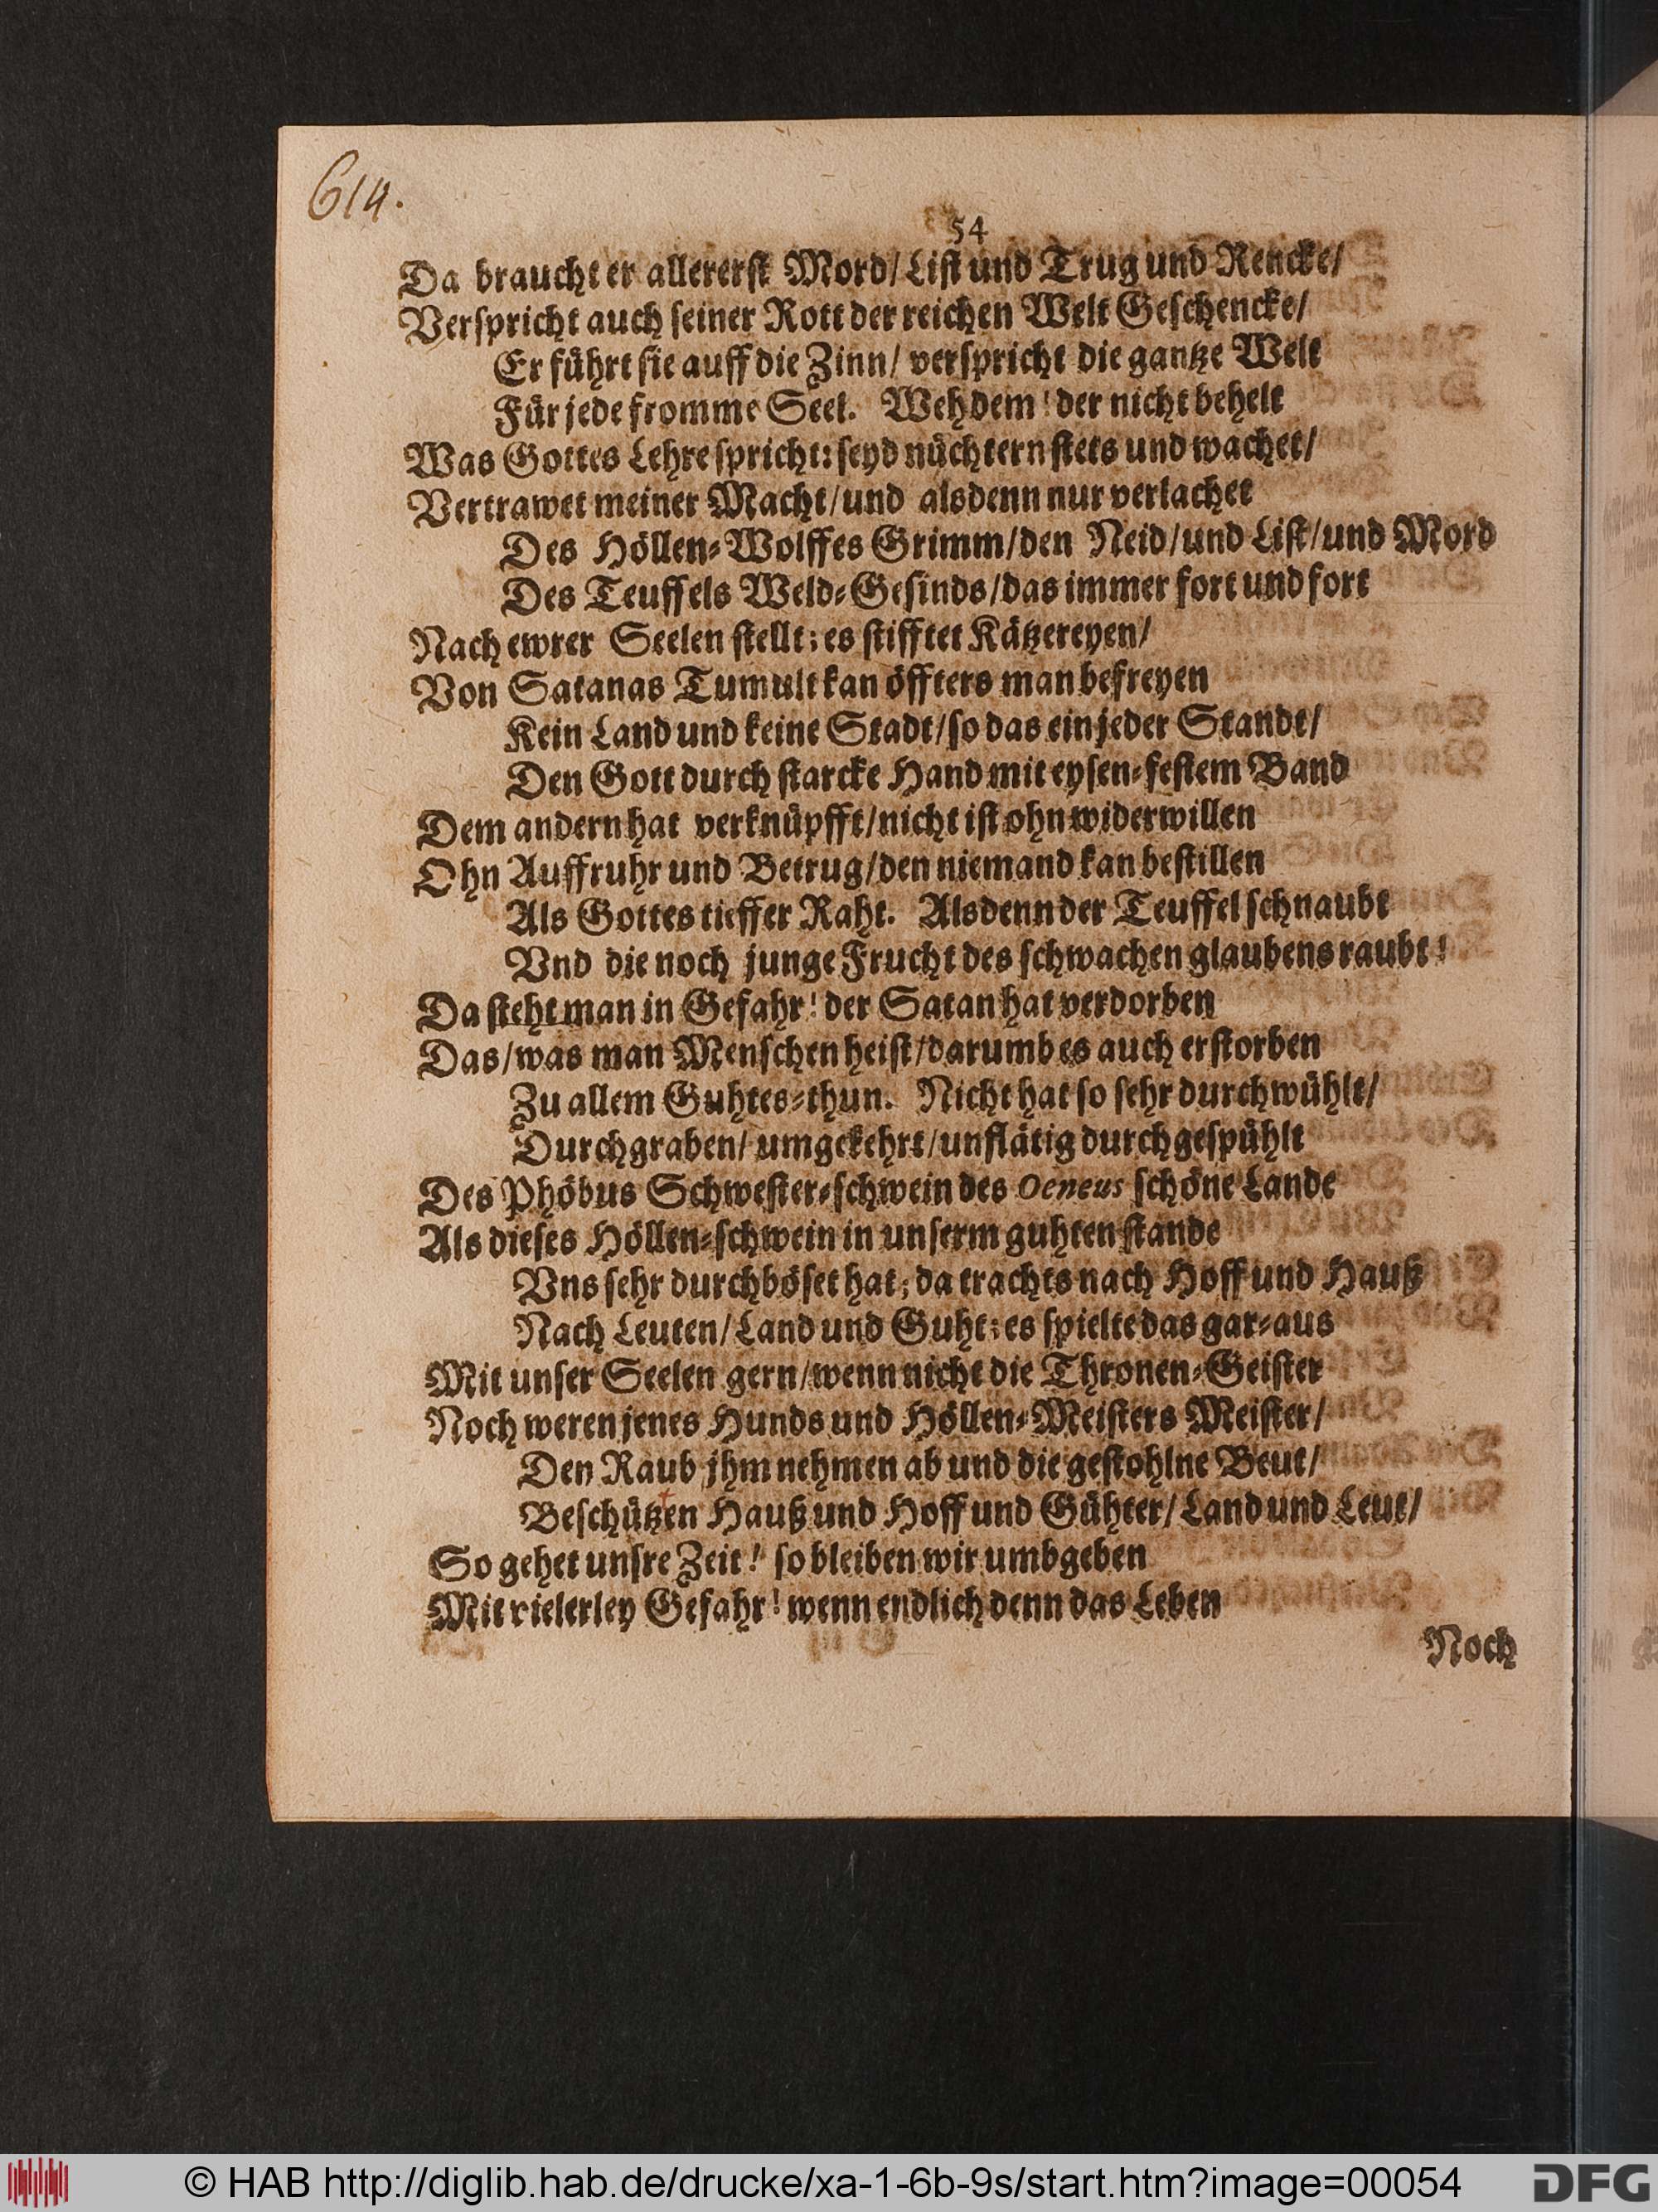 614.
54
Da braucht er allererst Mord/ List und Trug und Rencke/
Verspricht auch seiner Rott der reichen Welt Geschencke/
Er führt sie auff die Zinn/ verspricht die gantze Welt
Für jede fromme Seel. Weh dem! der nicht behelt
Was Gottes Lehre spricht: seyd nüchtern stets und wachet/
Vertrawet meiner Macht/ und alsdenn nur verlachet
Des Höllen-Wolffes Grimm/ den Neid/ und List/ und Mord
Des Teuffels Weld-Gesinds/ das immer fort und fort
Nach ewrer Seelen stellt; es stifftet Kätzereyen/
Von Satanas Tumult kan öffters man befreyen
Kein Land und keine Stadt/ so das ein jeder Standt/
Den Gott durch starcke Hand mit eysen-festem Band
Dem andern hat verknüpfft/ nicht ist ohn widerwillen
Ohn Auffruhr und Betrug/ den niemand kan bestillen
Als Gottes tieffer Raht. Alsdenn der Teuffel schnaubt
Vnd die noch junge Frucht des schwachen glaubens raubt!
Da steht man in Gefahr! der Satan hat verdorben
Das/ was man Menschen heist/ darumb es auch erstorben
Zu allem Guhtes-thun. Nicht hat so sehr durchwühlt/
Durchgraben/ umgekehrt/ unflätig durchgespühlt
Des Phöbus Schwester-schwein des Oeneus schöne Lande
Als dieses Höllen-schwein in unserm guhten stande
Vns sehr durchböset hat; da trachts nach Hoff und Hauß
Nach Leuten/ Land und Guht; es spielte das gar-aus
Mit unser Seelen gern/ wenn nicht die Thronen-Geister
Noch weren jenes Hunds und Höllen-Meisters Meister/
Den Raub jhm nehmen ab und die gestohlne Beut/
Beschützen Hauß und Hoff und Gühter/ Land und Leut/
So gehet unsre Zeit! so bleiben wir umbgeben
Mit vielerley Gefahr! wenn endlich denn das Leben
Noch
© HAB http://diglib.hab.de/drucke/xa-1-6b-9s/start.htm?image=00054
DFG